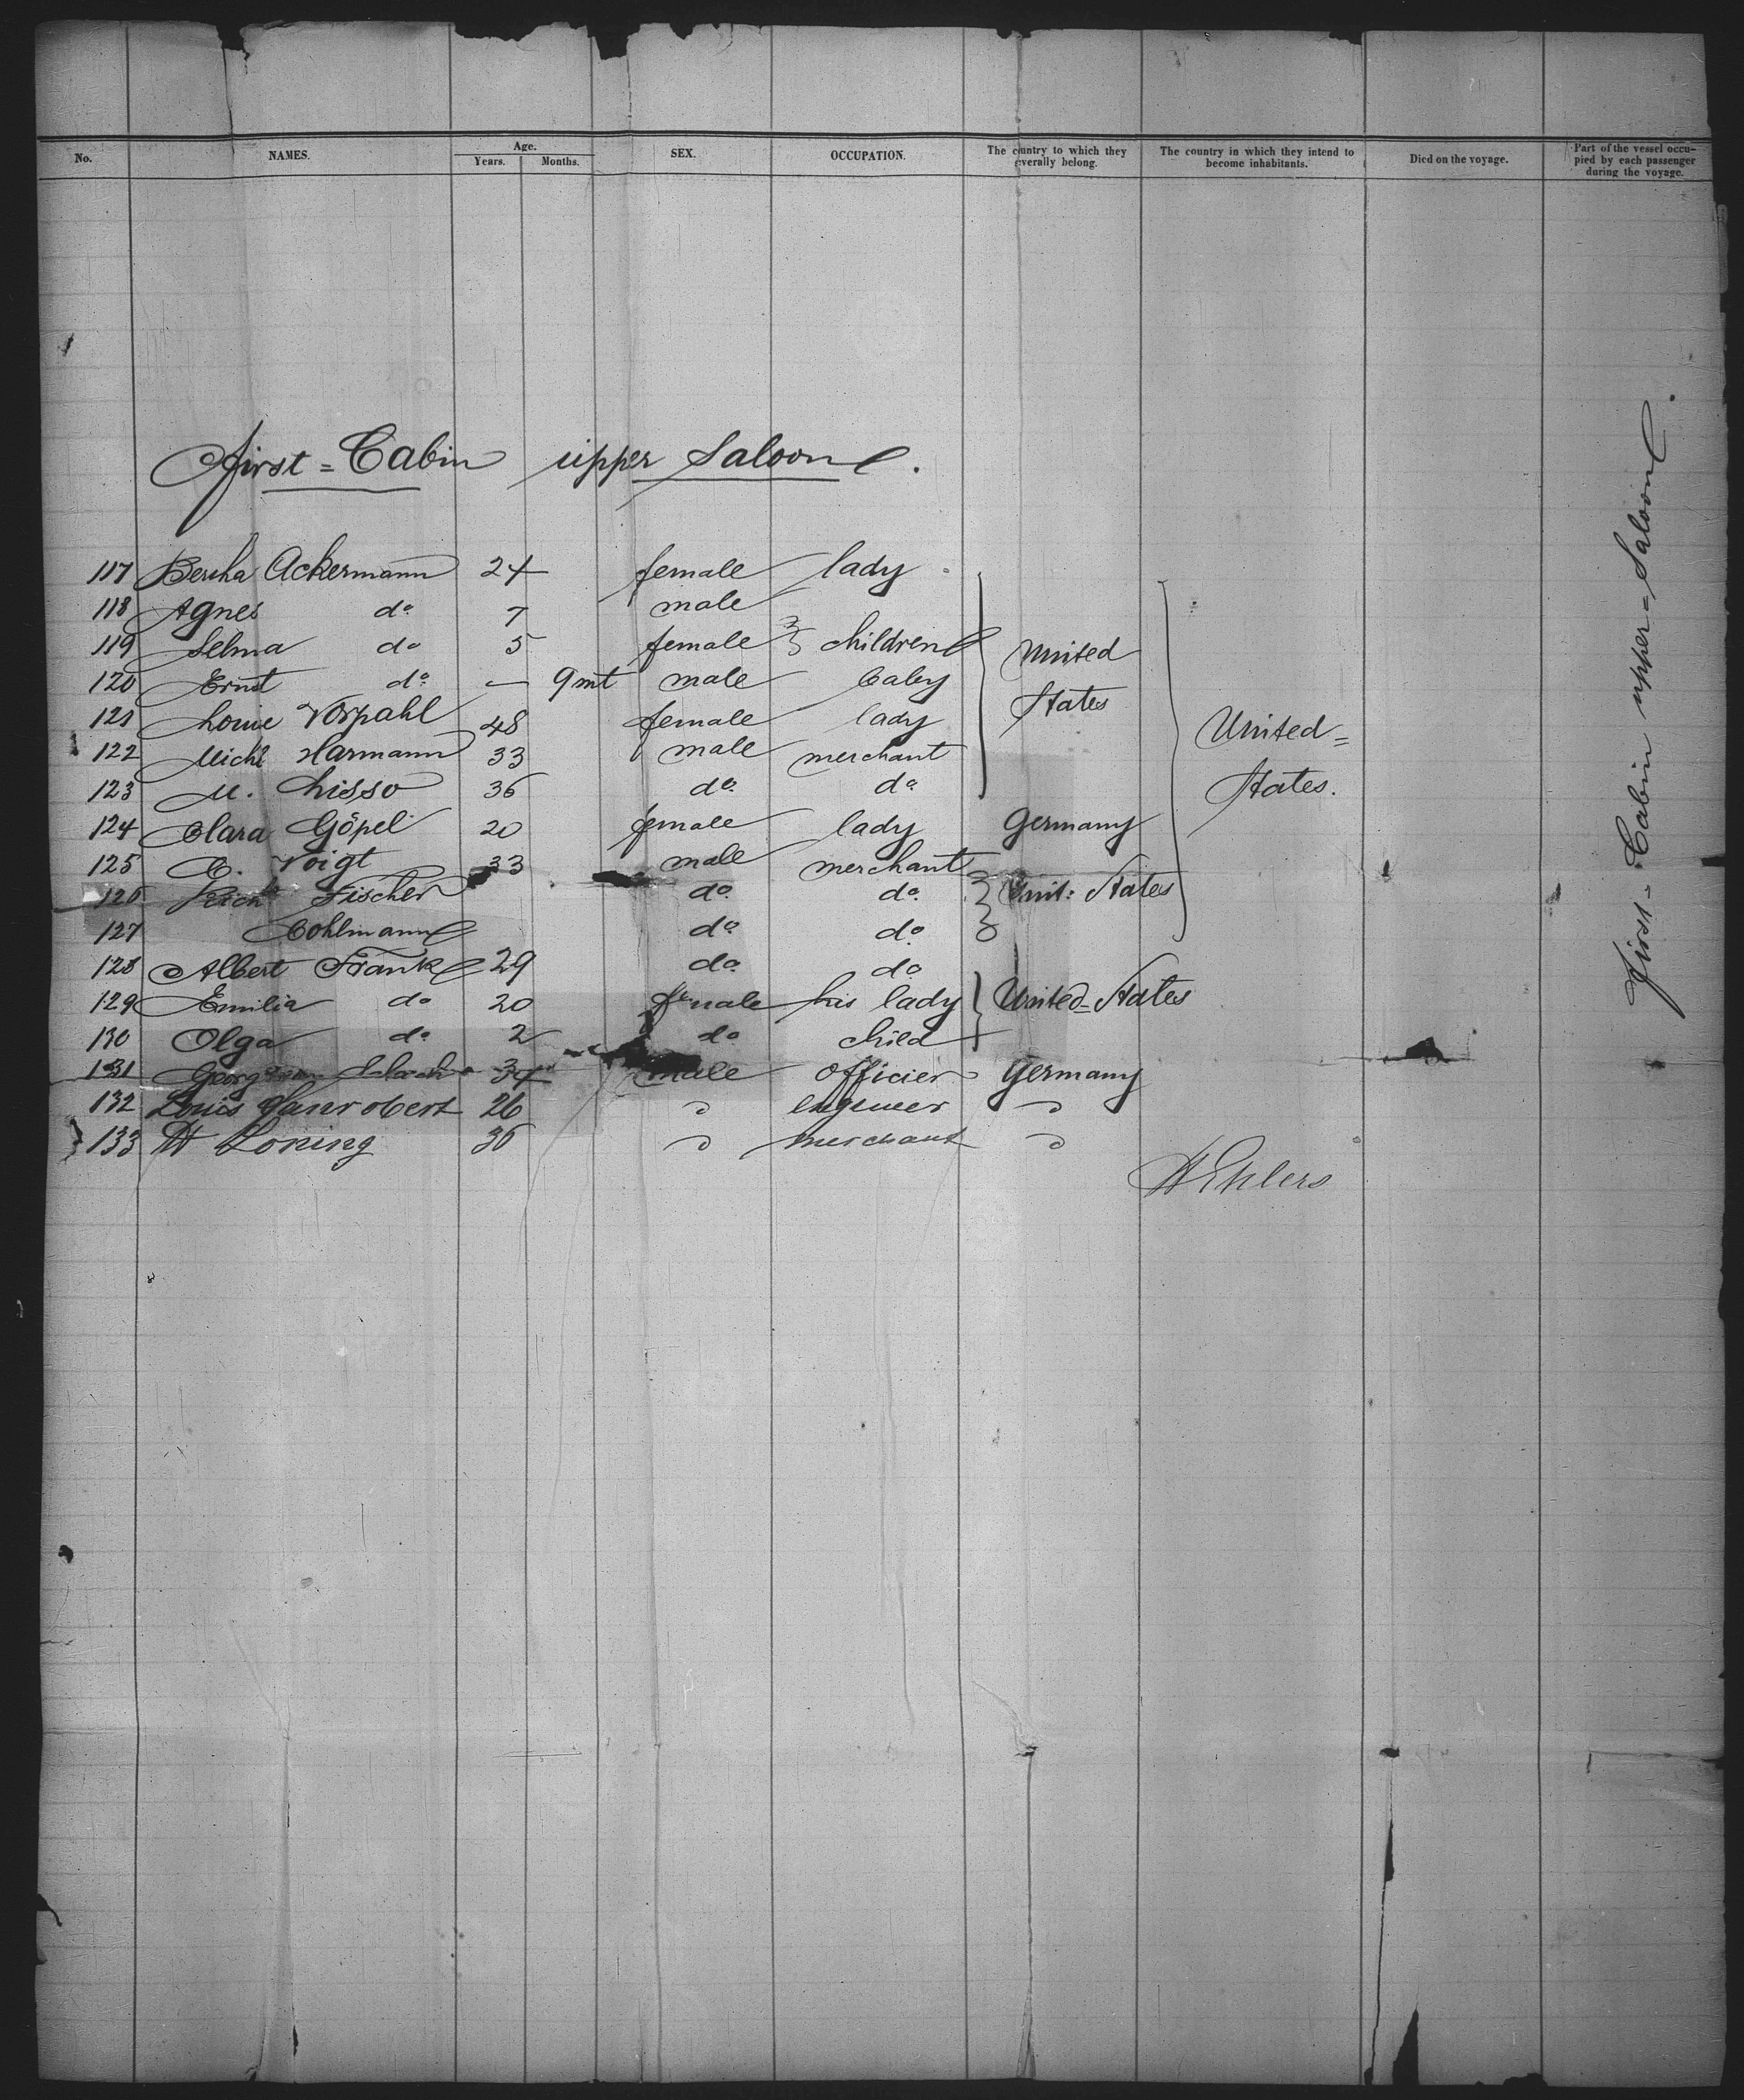 No. NAMES. Age. Years. Months. SEX. OCCUPATION. The country to which they severally belong. The country in which they intend to become inhabitants. Died on the voyage. Part of the vessel occupied by each passenger during the voyage.
First = Cabin upper Saloon.
117 Bertha Ackermann 24 female lady
118 Agnes do 7 male
119 Selma do 5 female children United
120 Ernst do — 9 mt male baby States
121 Louie Vorpahl 48 female lady United =
122 Michl Harmann 33 male merchant
123 M. Lisso 36 do do States.
124 Clara Göpel 20 female lady Germany
125 C. Voigt 33 male merchant
126 Richd Fischer do do Unit: States
127 Cohlmann do do
128 Albert Frank 29 do do
129 Emilia do 20 female his lady United = States
130 Olga do 2 do child
131 Georg 34 male officier Germany
132 Louis 26 " engineer "
133 H Loning 36 " merchant "
H Ehlers
First = Cabin upper = Saloon.